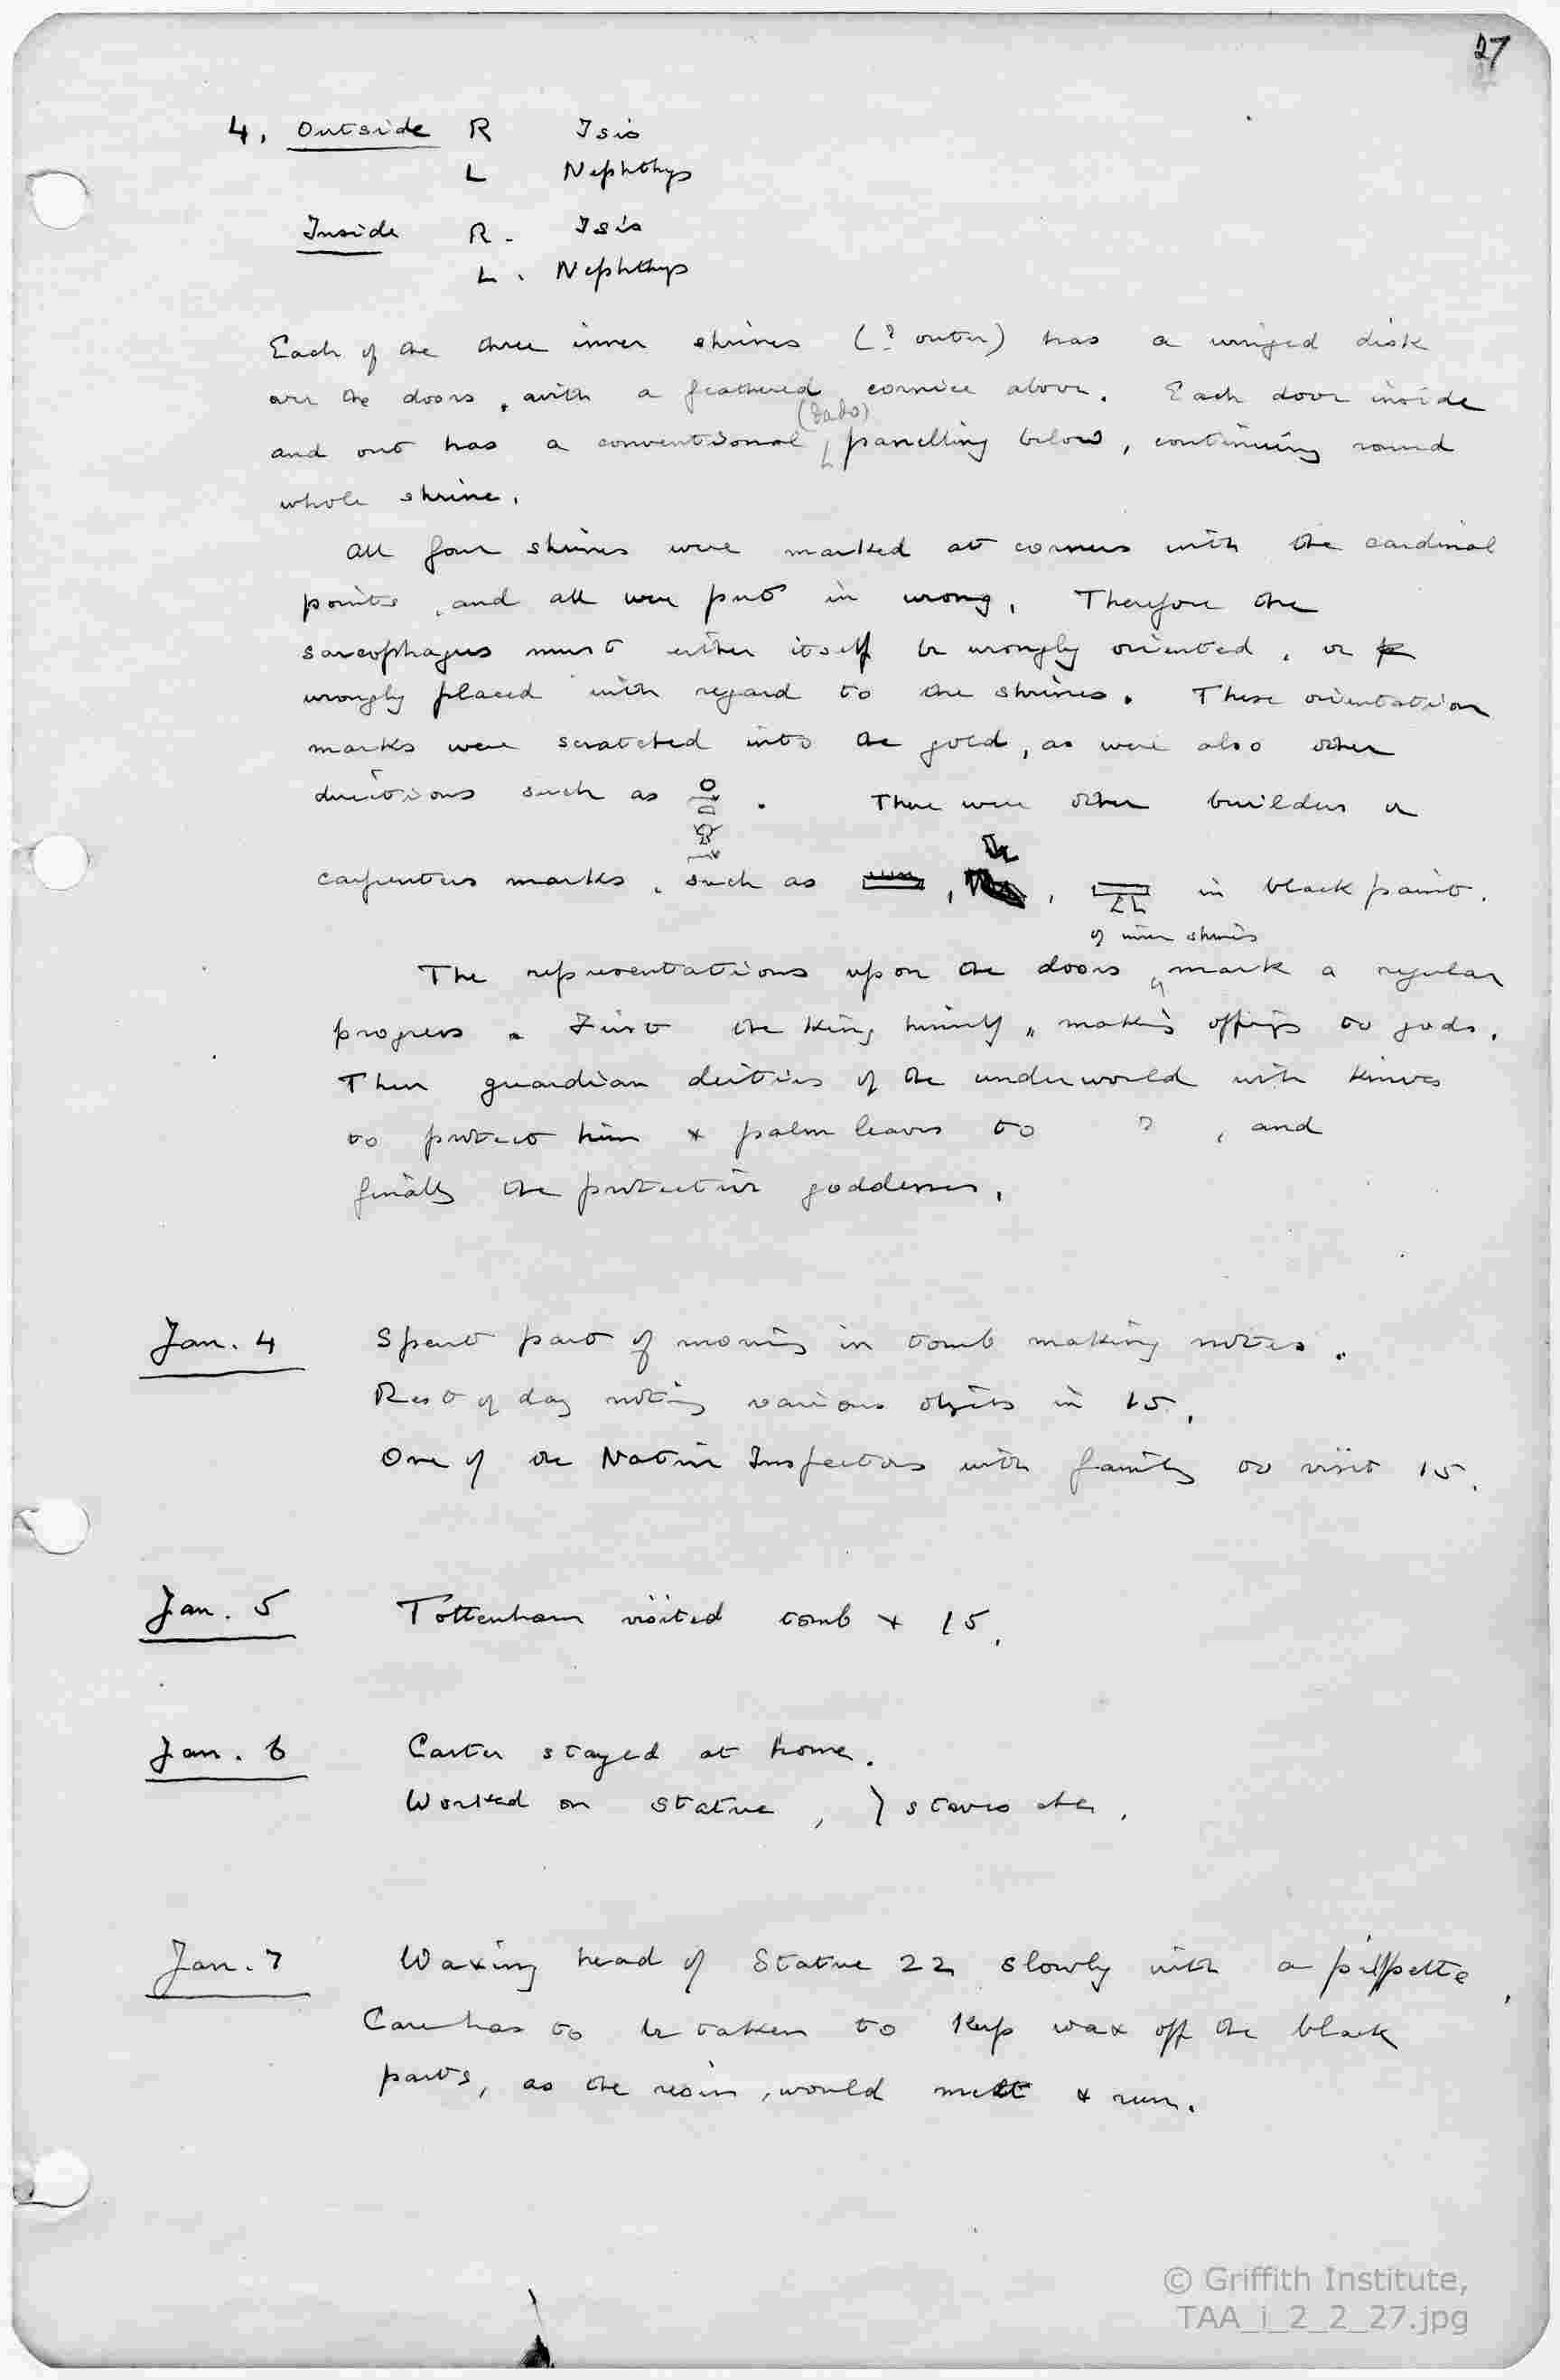 27
4. Outside R Isis
L Nephthys
Inside R. Isis
L. Nephthys
Each of the three inner shrines (? outer) has a winged disk
over the doors, with a feathered cornice above. Each door inside
(dado)
and out has a conventional panelling below, continuing round
whole shrine.
All four shrines were marked at corners with the cardinal
points, and all were put in wrong. Therefore the
sarcophagus must either itself be wrongly oriented, or
wrongly placed with regard to the shrines. These orientation
marks were scratched into the gold, as were also other
directions such as . There were other builders or
carpenters marks, such as , , in black paint.
of inner shrines
The representations upon the doors mark a regular
progress. First the king himself, making offerings to gods.
Then guardian deities of the underworld with knives
to protect him & palm leaves to ? , and
finally the protective goddesses.
Jan. 4 Spent part of morning in tomb making notes.
Rest of day noting various objects in 15.
One of the Native Inspectors with family to visit 15.
Jan. 5 Tottenham visited tomb & 15.
Jan. 6 Carter stayed at home.
Worked on statue, } staves etc.
Jan. 7 Waxing head of Statue 22 slowly with a pippette.
Care has to be taken to keep wax off the black
parts, as the resin, would melt & run.
© Griffith Institute,
TAA_i_2_2_27.jpg